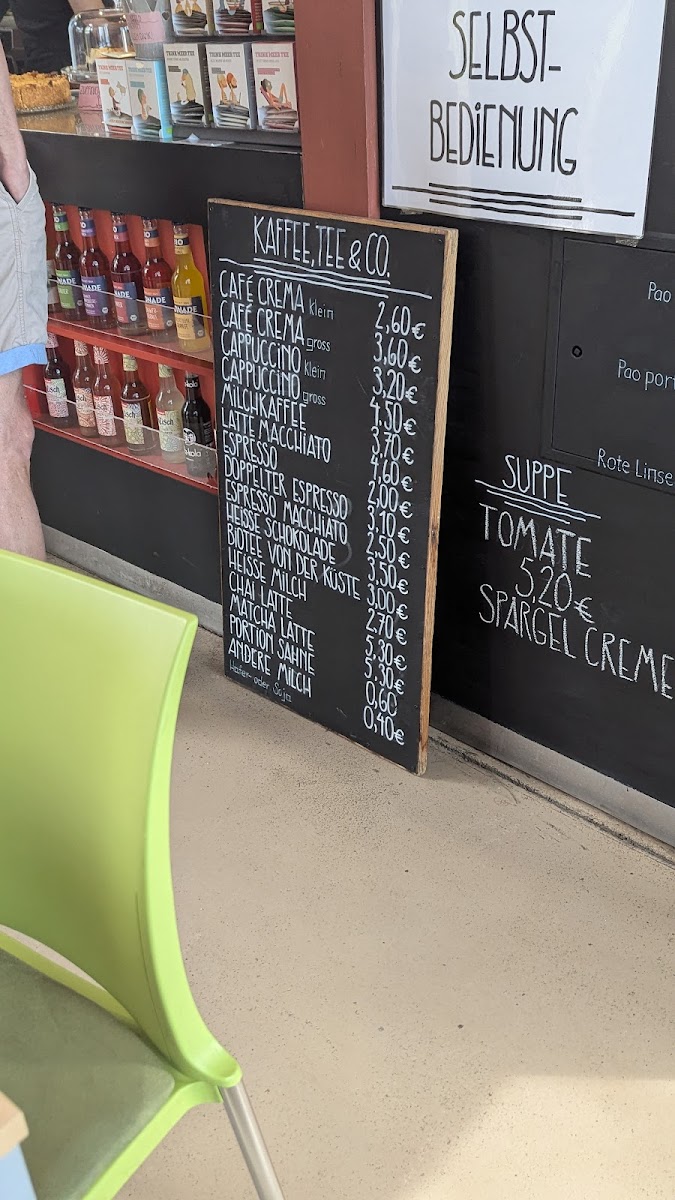 SELBST-
BEDIENUNG
TRINK MEER TEE
TRINK MEER TEE
KAFFEE, TEE & CO.
CAFÉ CREMA klein 2,60€
CAFÉ CREMA gross 3,60€
CAPPUCCINO klein 3,20€
CAPPUCCINO gross 4,50€
MILCHKAFFEE 3,70€
LATTE MACCHIATO 4,60€
ESPRESSO 2,00€
DOPPELTER ESPRESSO 3,10€
ESPRESSO MACCHIATO 2,50€
HEISSE SCHOKOLADE 3,50€
BIOTEE VON DER KÜSTE 3,00€
HEISSE MILCH 2,70€
CHAI LATTE 5,30€
MATCHA LATTE 5,30€
PORTION SAHNE 0,60
ANDERE MILCH 0,40€
Hafer- oder Soja
Pao
Pao port
Rote Linse
SUPPE
TOMATE
5,20€
SPARGELCREME